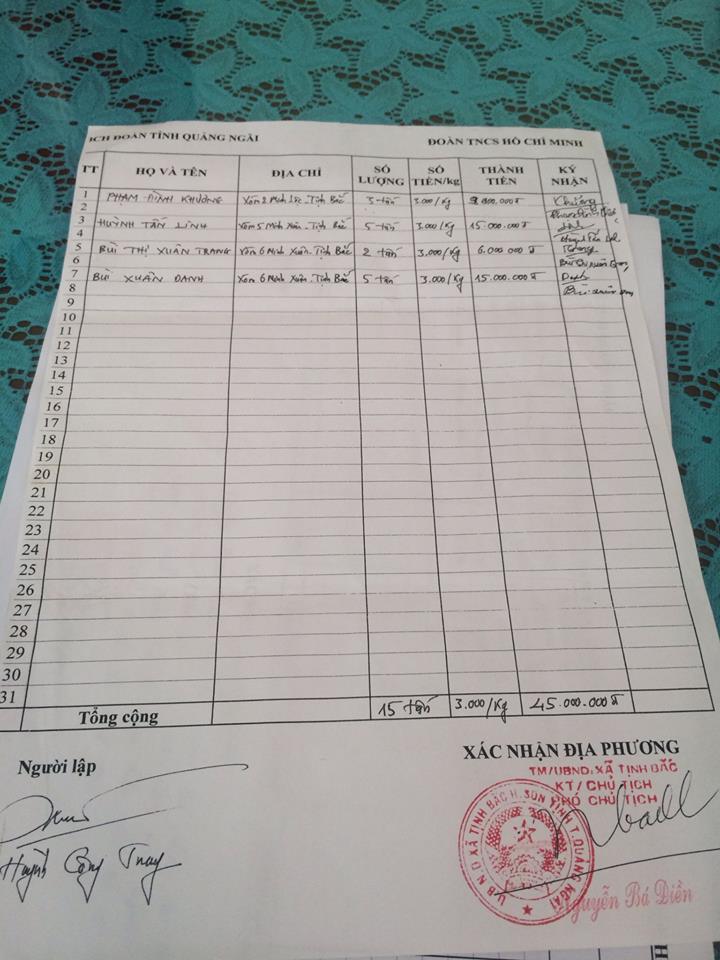 ICH ĐOÀN TỈNH QUẢNG NGÃI ĐOÀN TNCS HỒ CHÍ MINH
TT HỌ VÀ TÊN ĐỊA CHỈ SỐ LƯỢNG SỐ TIỀN/kg THÀNH TIỀN KÝ NHẬN
1 PHẠM ĐÌNH KHƯƠNG Xóm 2 Minh Lộc - Tịnh Bắc 3 tấn 3.000/kg 9.000.000đ Khương
2
3 HUỲNH TẤN LINH Xóm 5 Minh Xuân - Tịnh Bắc 5 tấn 3.000/kg 15.000.000đ
4
5 BÙI THỊ XUÂN TRANG Xóm 6 Minh Xuân - Tịnh Bắc 2 tấn 3.000/kg 6.000.000đ Trang
6 Bùi Thị Xuân Trang
7 BÙI XUÂN DANH Xóm 6 Minh Xuân - Tịnh Bắc 5 tấn 3.000/kg 15.000.000đ Danh
8
9
10
11
12
13
14
15
16
17
18
19
20
21
22
23
24
25
26
27
28
29
30
31
Tổng cộng 15 tấn 3.000/kg 45.000.000đ
Người lập XÁC NHẬN ĐỊA PHƯƠNG
TM/UBND: XÃ TỊNH BẮC
KT/ CHỦ TỊCH
PHÓ CHỦ TỊCH
U.B.N.D XÃ TỊNH BẮC H. SƠN TỊNH T. QUẢNG NGÃI
Huỳnh Công
Nguyễn Bá Diễn